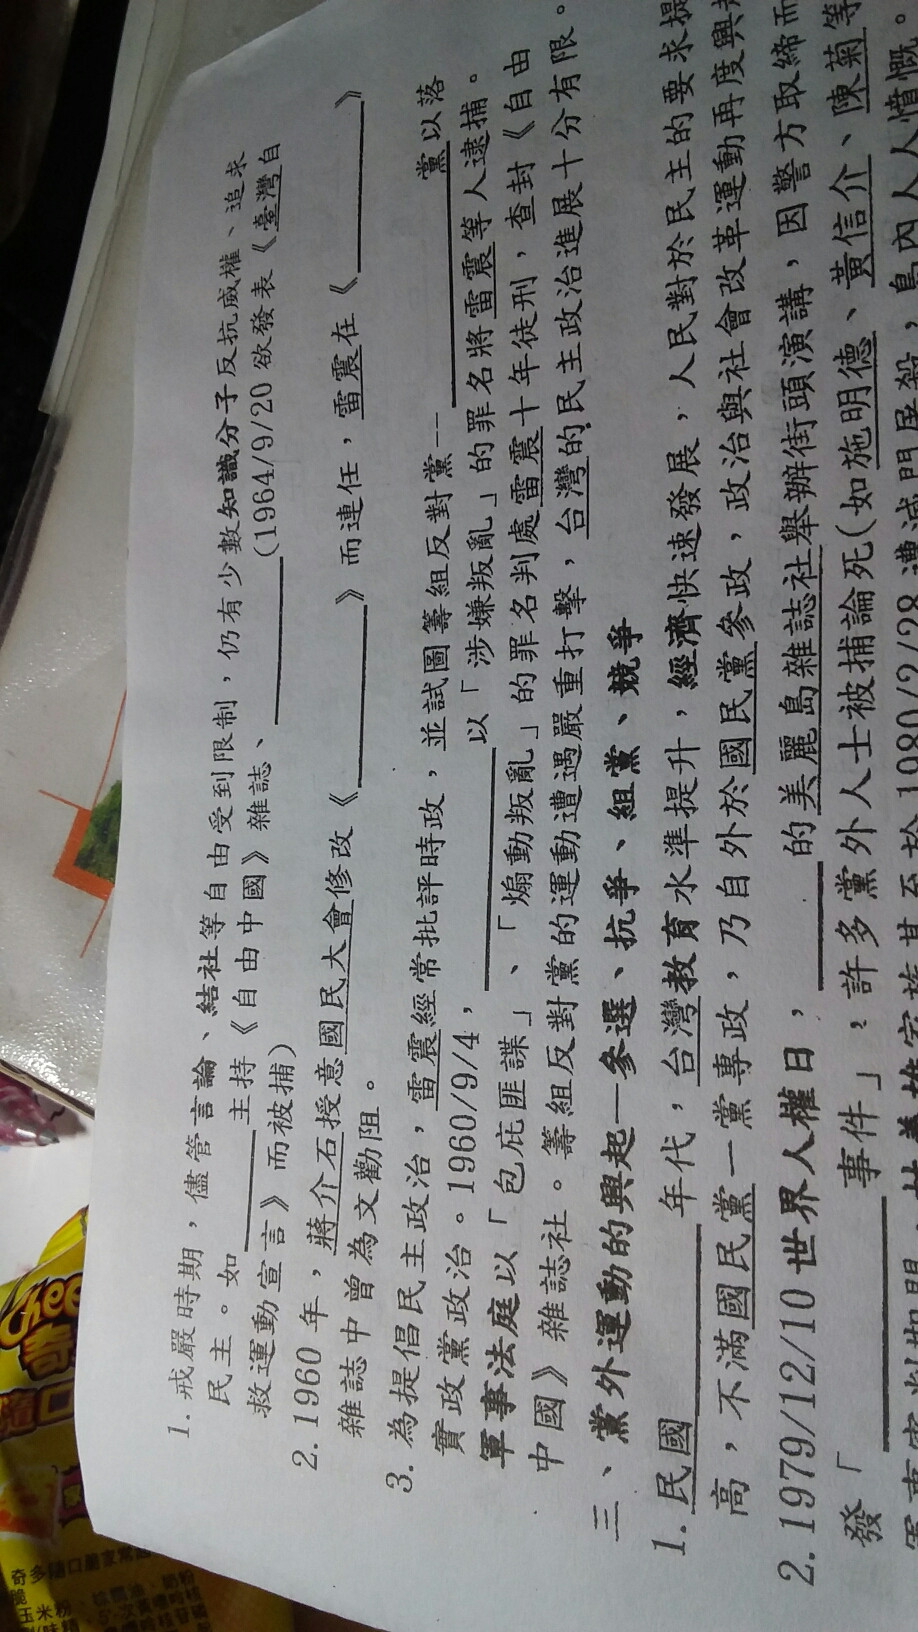 1. 戒嚴時期，儘管言論、結社等自由受到限制，仍有少數知識分子反抗威權、追求
民主。如________主持《自由中國》雜誌、________(1964/9/20 欲發表《臺灣自
救運動宣言》而被捕)
2. 1960 年，蔣介石授意國民大會修改《________》而連任，雷震在《________》
雜誌中曾為文勸阻。
3. 為提倡民主政治，雷震經常批評時政，並試圖籌組反對黨--________黨以落
實政黨政治。1960/9/4，________以「涉嫌叛亂」的罪名將雷震等人逮捕。
軍事法庭以「包庇匪諜」、「煽動叛亂」的罪名判處雷震十年徒刑，查封《自由
中國》雜誌社。籌組反對黨的運動遭遇嚴重打擊，台灣的民主政治進展十分有限。
三、黨外運動的興起—參選、抗爭、組黨、競爭
1. 民國________年代，台灣教育水準提升，經濟快速發展，人民對於民主的要求提
高，不滿國民黨一黨專政，乃自外於國民黨參政，政治與社會改革運動再度興
2. 1979/12/10 世界人權日，________的美麗島雜誌社舉辦街頭演講，因警方取締而
發「________事件」，許多黨外人士被捕論死(如施明德、黃信介、陳菊等
1980/2/28 遭滅門屠殺，島內人人憤慨。
Chee
奇多隨口
玉米粉